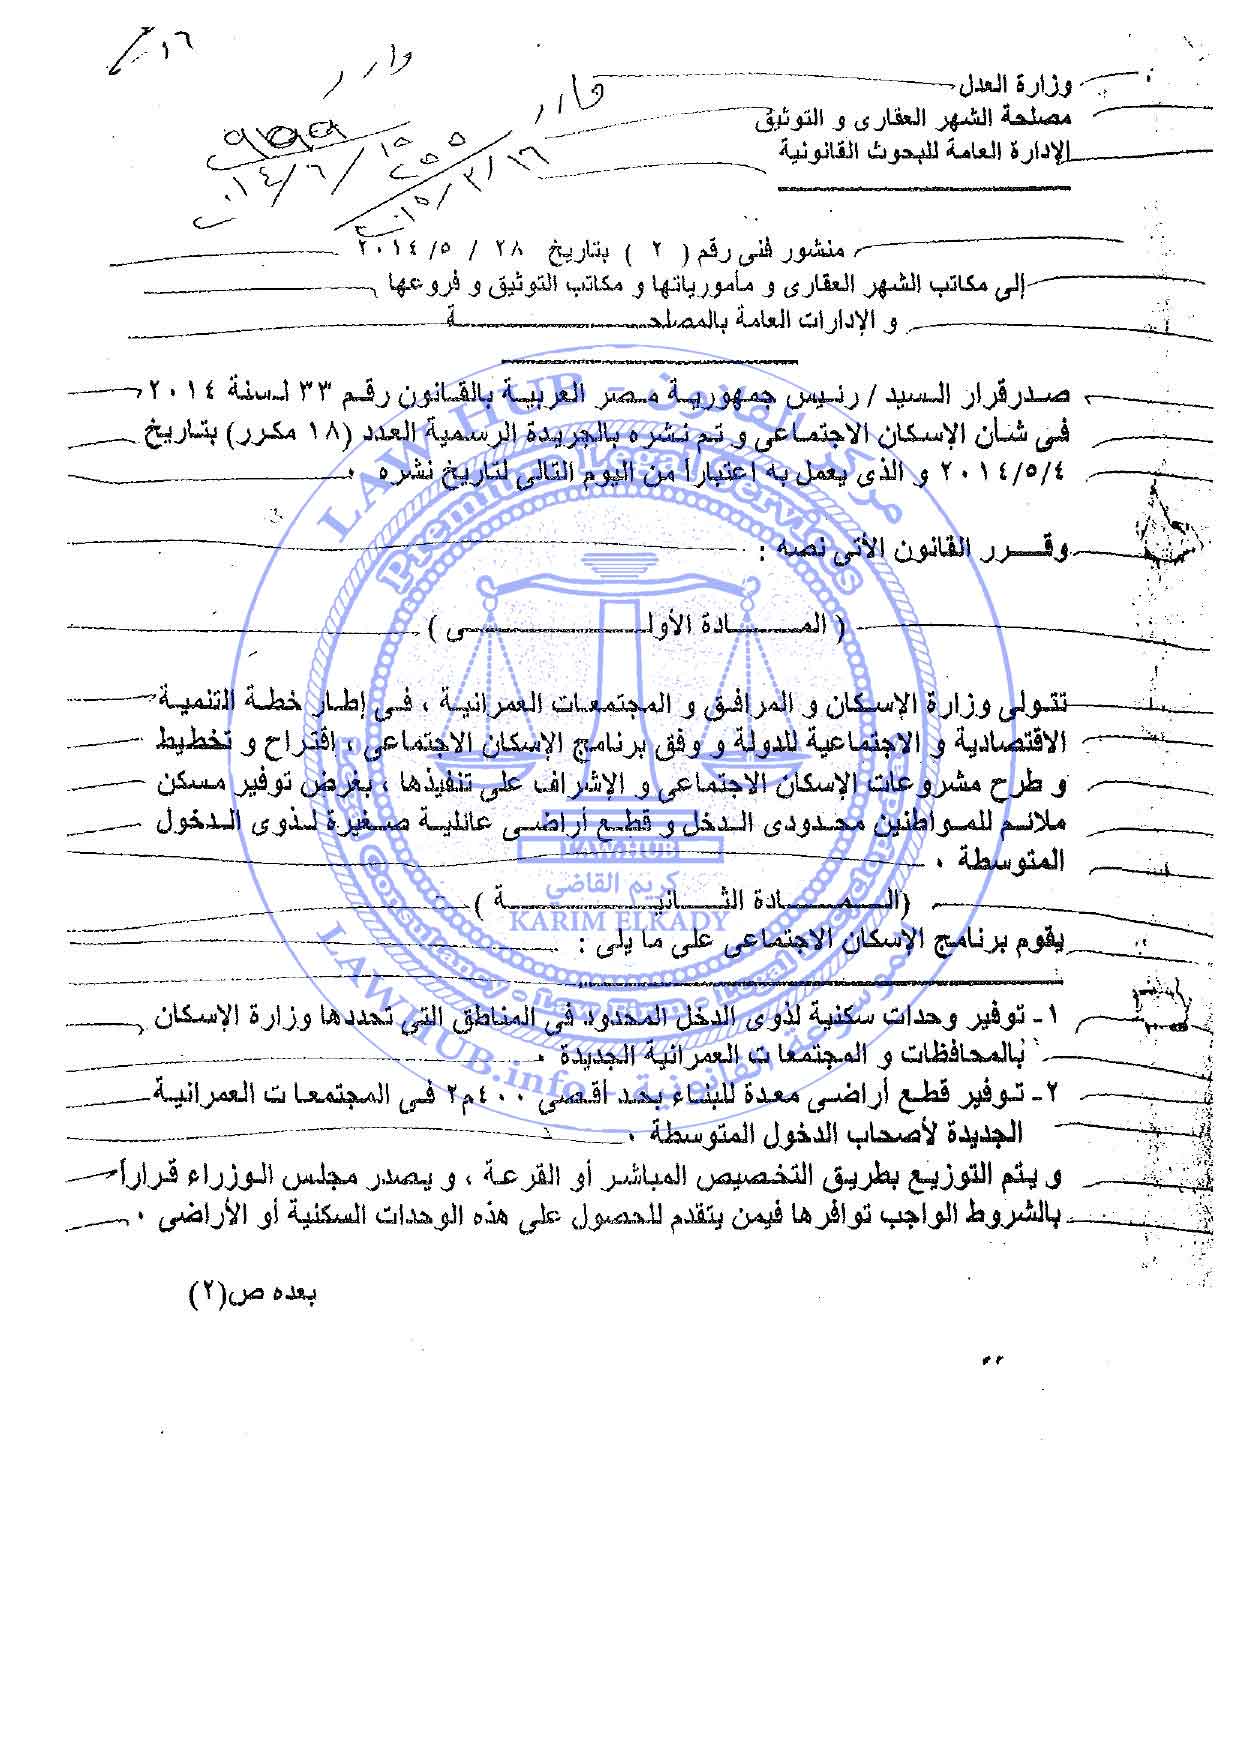 ١٦
وارد
٩٥٥٩
٢٠١٤/٦/١٥
وارد
٢٥٥
٢٠١٥/٣/١٦
وزارة العدل
مصلحة الشهر العقارى و التوثيق
الإدارة العامة للبحوث القانونية
منشور فنى رقم ( ٢ ) بتاريخ ٢٨ / ٥ /٢٠١٤
إلى مكاتب الشهر العقارى و مأمورياتها و مكاتب التوثيق و فروعها
و الإدارات العامة بالمصلحـــــــــــــــــة
صدر قرار السيد / رئيس جمهورية مصر العربية بالقانون رقم ٣٣ لسنة ٢٠١٤
فى شأن الإسكان الاجتماعى و تم نشره بالجريدة الرسمية العدد (١٨ مكرر) بتاريخ
٢٠١٤/٥/٤ و الذى يعمل به اعتباراً من اليوم التالى لتاريخ نشره ٠
وقـــرر القانون الآتى نصه :
( المـــــــادة الأولــــــــــــــــى )
تتولى وزارة الإسكان و المرافق و المجتمعات العمرانية ، فى إطار خطة التنمية
الاقتصادية و الاجتماعية للدولة و وفق برنامج الإسكان الاجتماعى ، اقتراح و تخطيط
و طرح مشروعات الإسكان الاجتماعى و الإشراف على تنفيذها ، بغرض توفير مسكن
ملائم للمواطنين محدودى الدخل و قطع أراضى عائلية صغيرة لذوى الدخول
المتوسطة ٠
(الـــمـــــادة الثـــانيـــــــــــــة )
يقوم برنامج الإسكان الاجتماعى على ما يلى :
١- توفير وحدات سكنية لذوى الدخل المحدود فى المناطق التى تحددها وزارة الإسكان
بالمحافظات و المجتمعات العمرانية الجديدة ٠
٢- توفير قطع أراضى معدة للبناء بحد أقصى ٤٠٠م٢ فى المجتمعات العمرانية
الجديدة لأصحاب الدخول المتوسطة ٠
و يتم التوزيع بطريق التخصيص المباشر أو القرعة ، و يصدر مجلس الوزراء قراراً
بالشروط الواجب توافرها فيمن يتقدم للحصول على هذه الوحدات السكنية أو الأراضى ٠
بعده ص(٢)
LAWHUB - مركز القانون
Premium Legal Services
LAWHUB
كريم القاضي
KARIM ELKADY
Legal Consultancy - Law Firm - Legal Encyclopedia
LAWHUB.info - الموسوعة القانونية